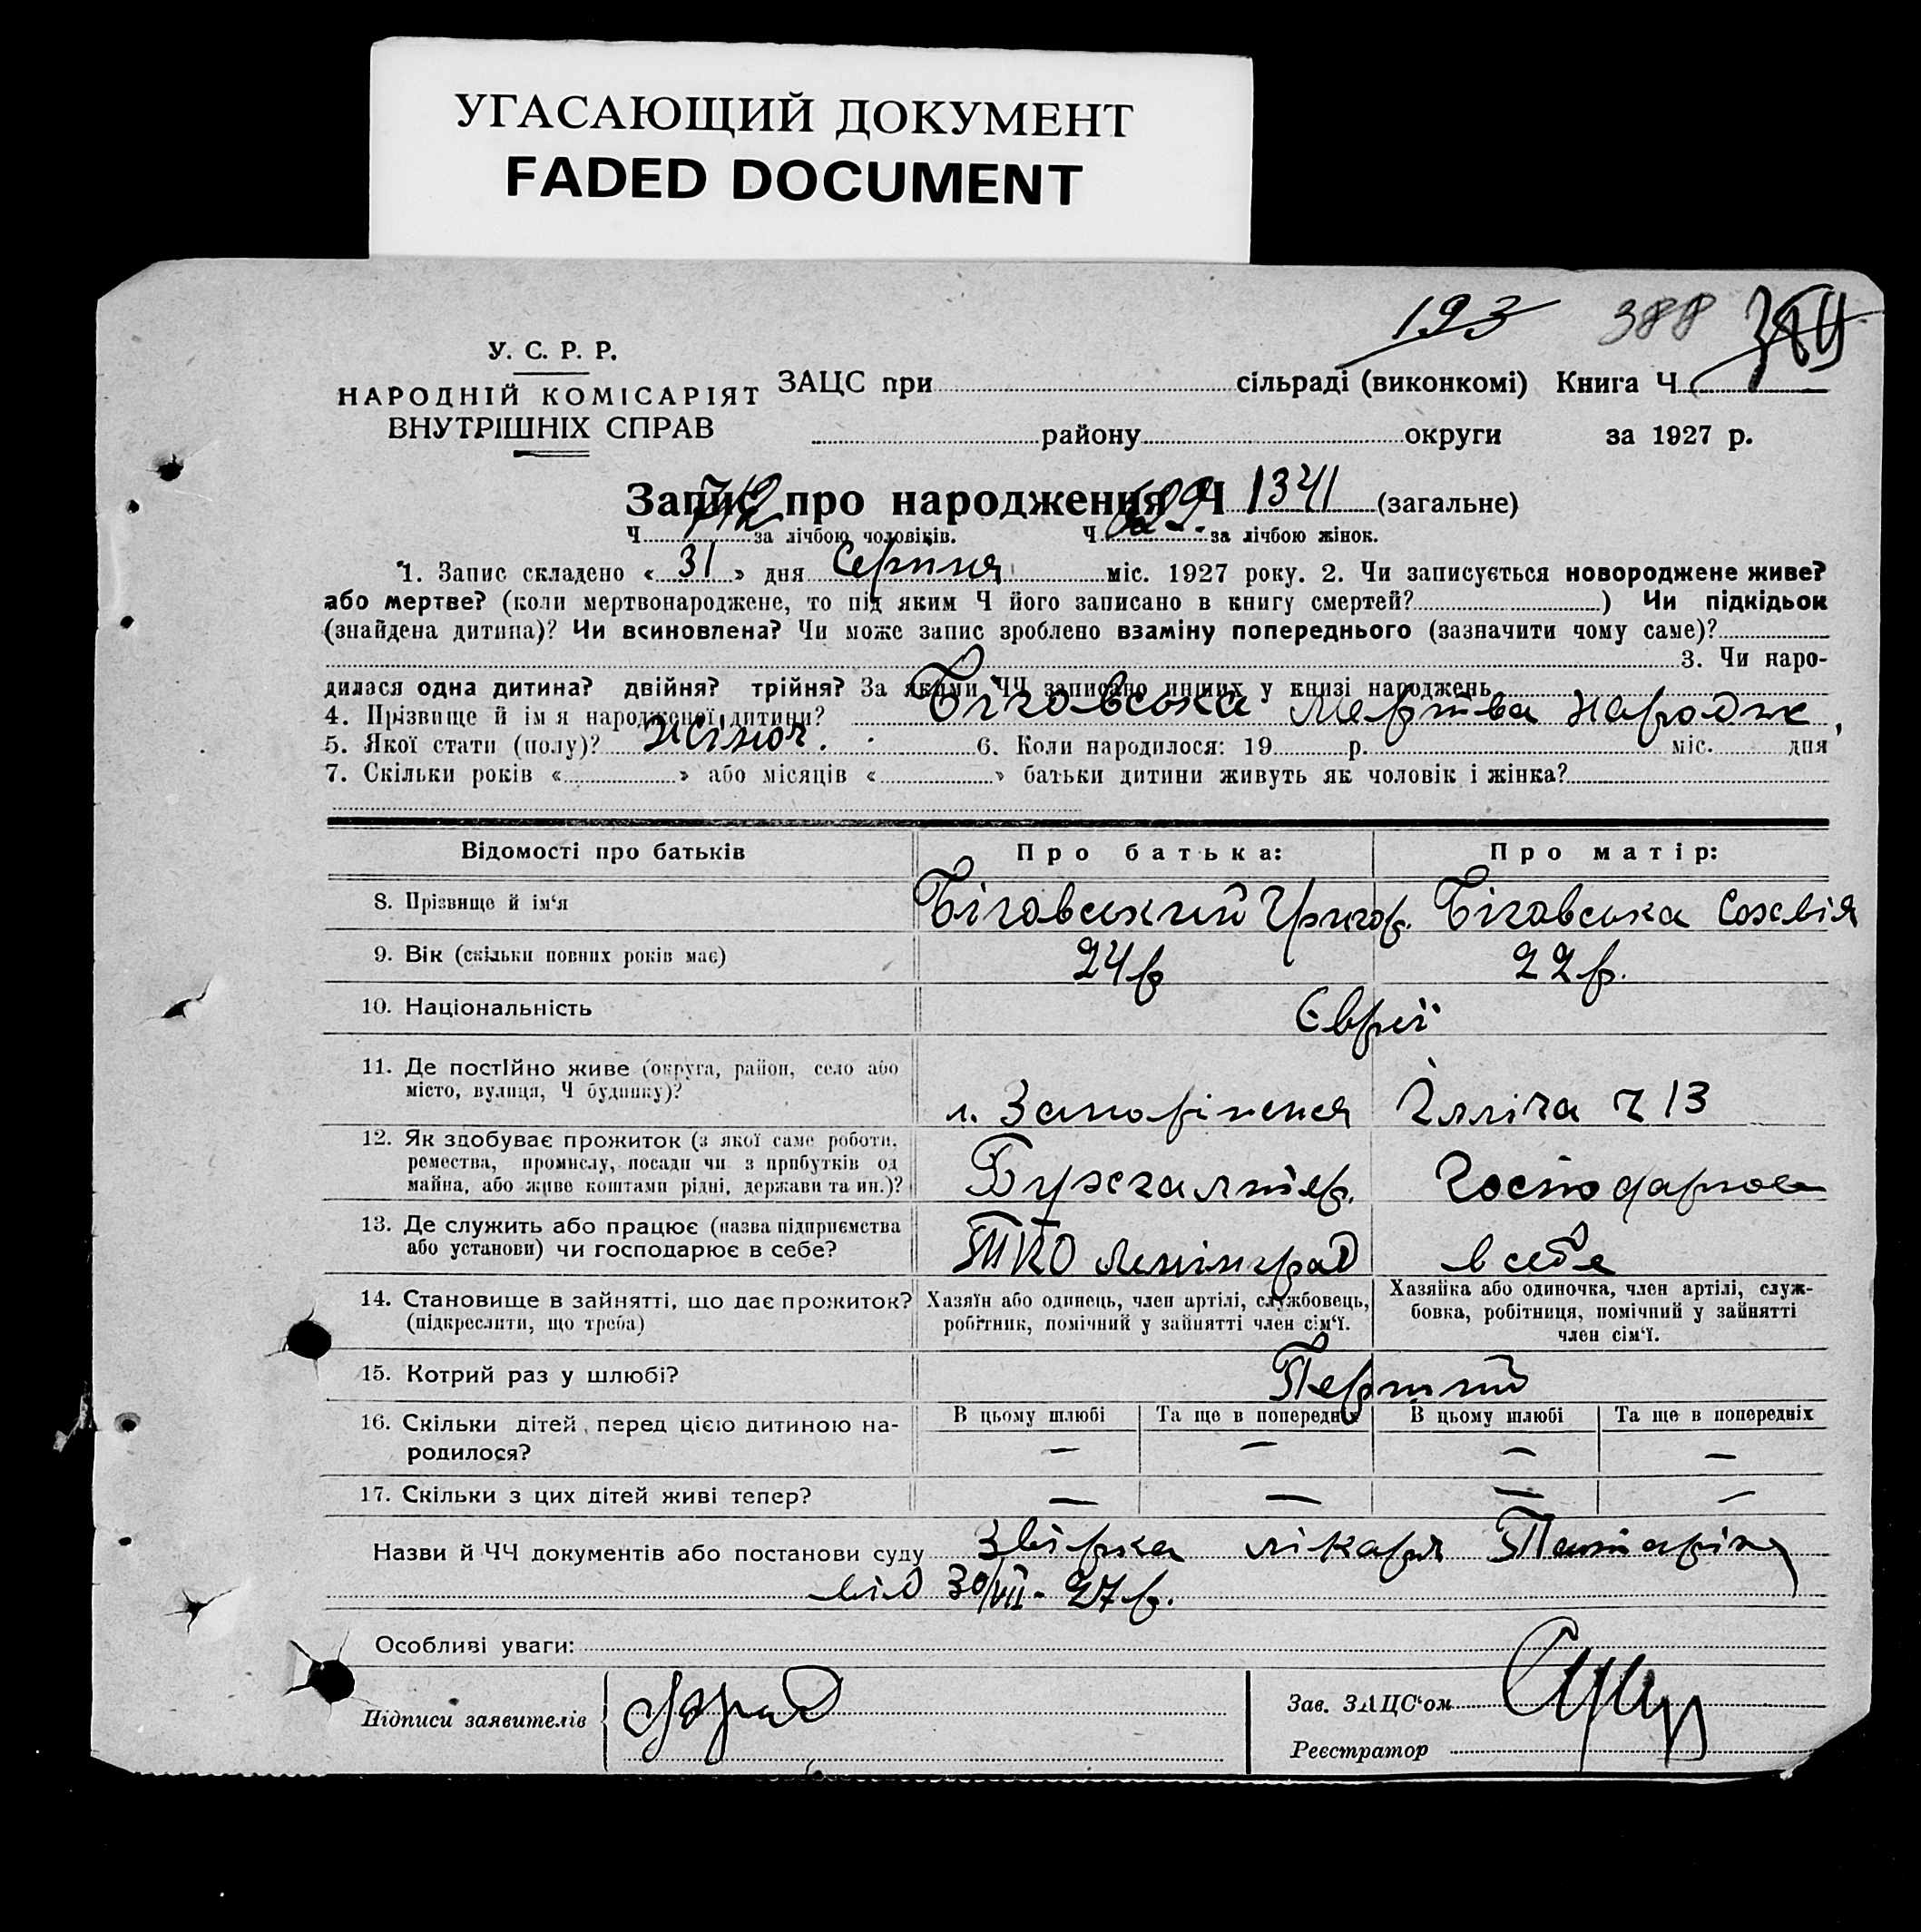 УГАСАЮЩИЙ ДОКУМЕНТ
FADED DOCUMENT
193 388
У. С. Р. Р.
НАРОДНІЙ КОМІСАРІЯТ
ВНУТРІШНІХ СПРАВ
ЗАЦС при сільраді (виконкомі) Книга Ч
району округи за 1927 р.
Запис про народження Ч 1341 (загальне)
Ч 712 за лічбою чоловіків. Ч 629 за лічбою жінок.
1. Запис складено « 31 » дня Серпня міс. 1927 року. 2. Чи записується новороджене живе?
або мертве? (коли мертвонароджене, то під яким Ч його записано в книгу смертей? ) Чи підкідьок
(знайдена дитина)? Чи всиновлена? Чи може запис зроблено взаміну попереднього (зазначити чому саме)?
3. Чи наро-
дилася одна дитина? двійня? трійня? За якими ЧЧ записано инших у книзі народжень
4. Прізвище й ім я народженої дитини? Біговська мертва народж
5. Якої стати (полу)? жіноч. 6. Коли народилося: 19 р. міс. дня
7. Скільки років « » або місяців « » батьки дитини живуть як чоловік і жінка?
Відомості про батьків Про батька: Про матір:
8. Прізвище й ім‘я Біговський Григор. Біговська
9. Вік (скільки повних років має) 24 р 22 р.
10. Національність Євреї
11. Де постійно живе (округа, район, село або
місто, вулиця, Ч будинку)? м. Запоріжжя Ілліча ч 13
12. Як здобуває прожиток (з якої саме роботи,
ремества, промислу, посади чи з прибутків од
майна, або живе коштами рідні, держави та ин.)? Бухгалтер. Господарює
13. Де служить або працює (назва підприємства
або установи) чи господарює в себе? Ленінград в себе
14. Становище в зайнятті, що дає прожиток?
(підкреслити, що треба)
Хазяїн або одинець, член артілі, службовець,
робітник, помічний у зайнятті член сім‘ї.
Хазяйка або одиночка, член артілі, служ-
бовка, робітниця, помічний у зайнятті
член сім‘ї.
15. Котрий раз у шлюбі? Перший
16. Скільки дітей перед цією дитиною на-
родилося?
В цьому шлюбі Та ще в попередніх В цьому шлюбі Та ще в попередніх
— — — —
17. Скільки з цих дітей живі тепер? — — — —
Назви й ЧЧ документів або постанови суду лікаря
від 30/VIII - 27 р.
Особливі уваги:
Підписи заявителів
Зав. ЗАЦС‘ом
Реєстратор